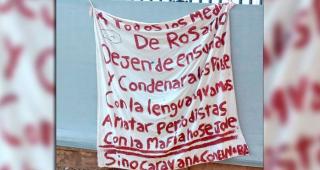 A Todos los Med
De Rosario
Dejen de ensuciar
y Condenar a los Pibes
Con la lengua q vamos
A matar Periodistas
Con la Mafia no se Jode
Sino caravana